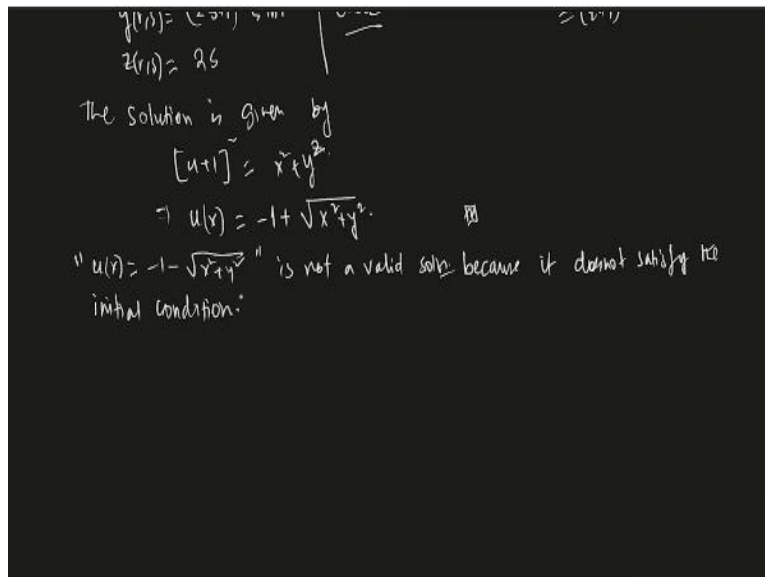 z(r,s) = 2s
The solution is given by
[u+1]² = x²+y²
⇒ u(x) = -1+√x²+y².
"u(x) = -1-√x²+y²" is not a valid soln because it doesnot satisfy the
initial condition.